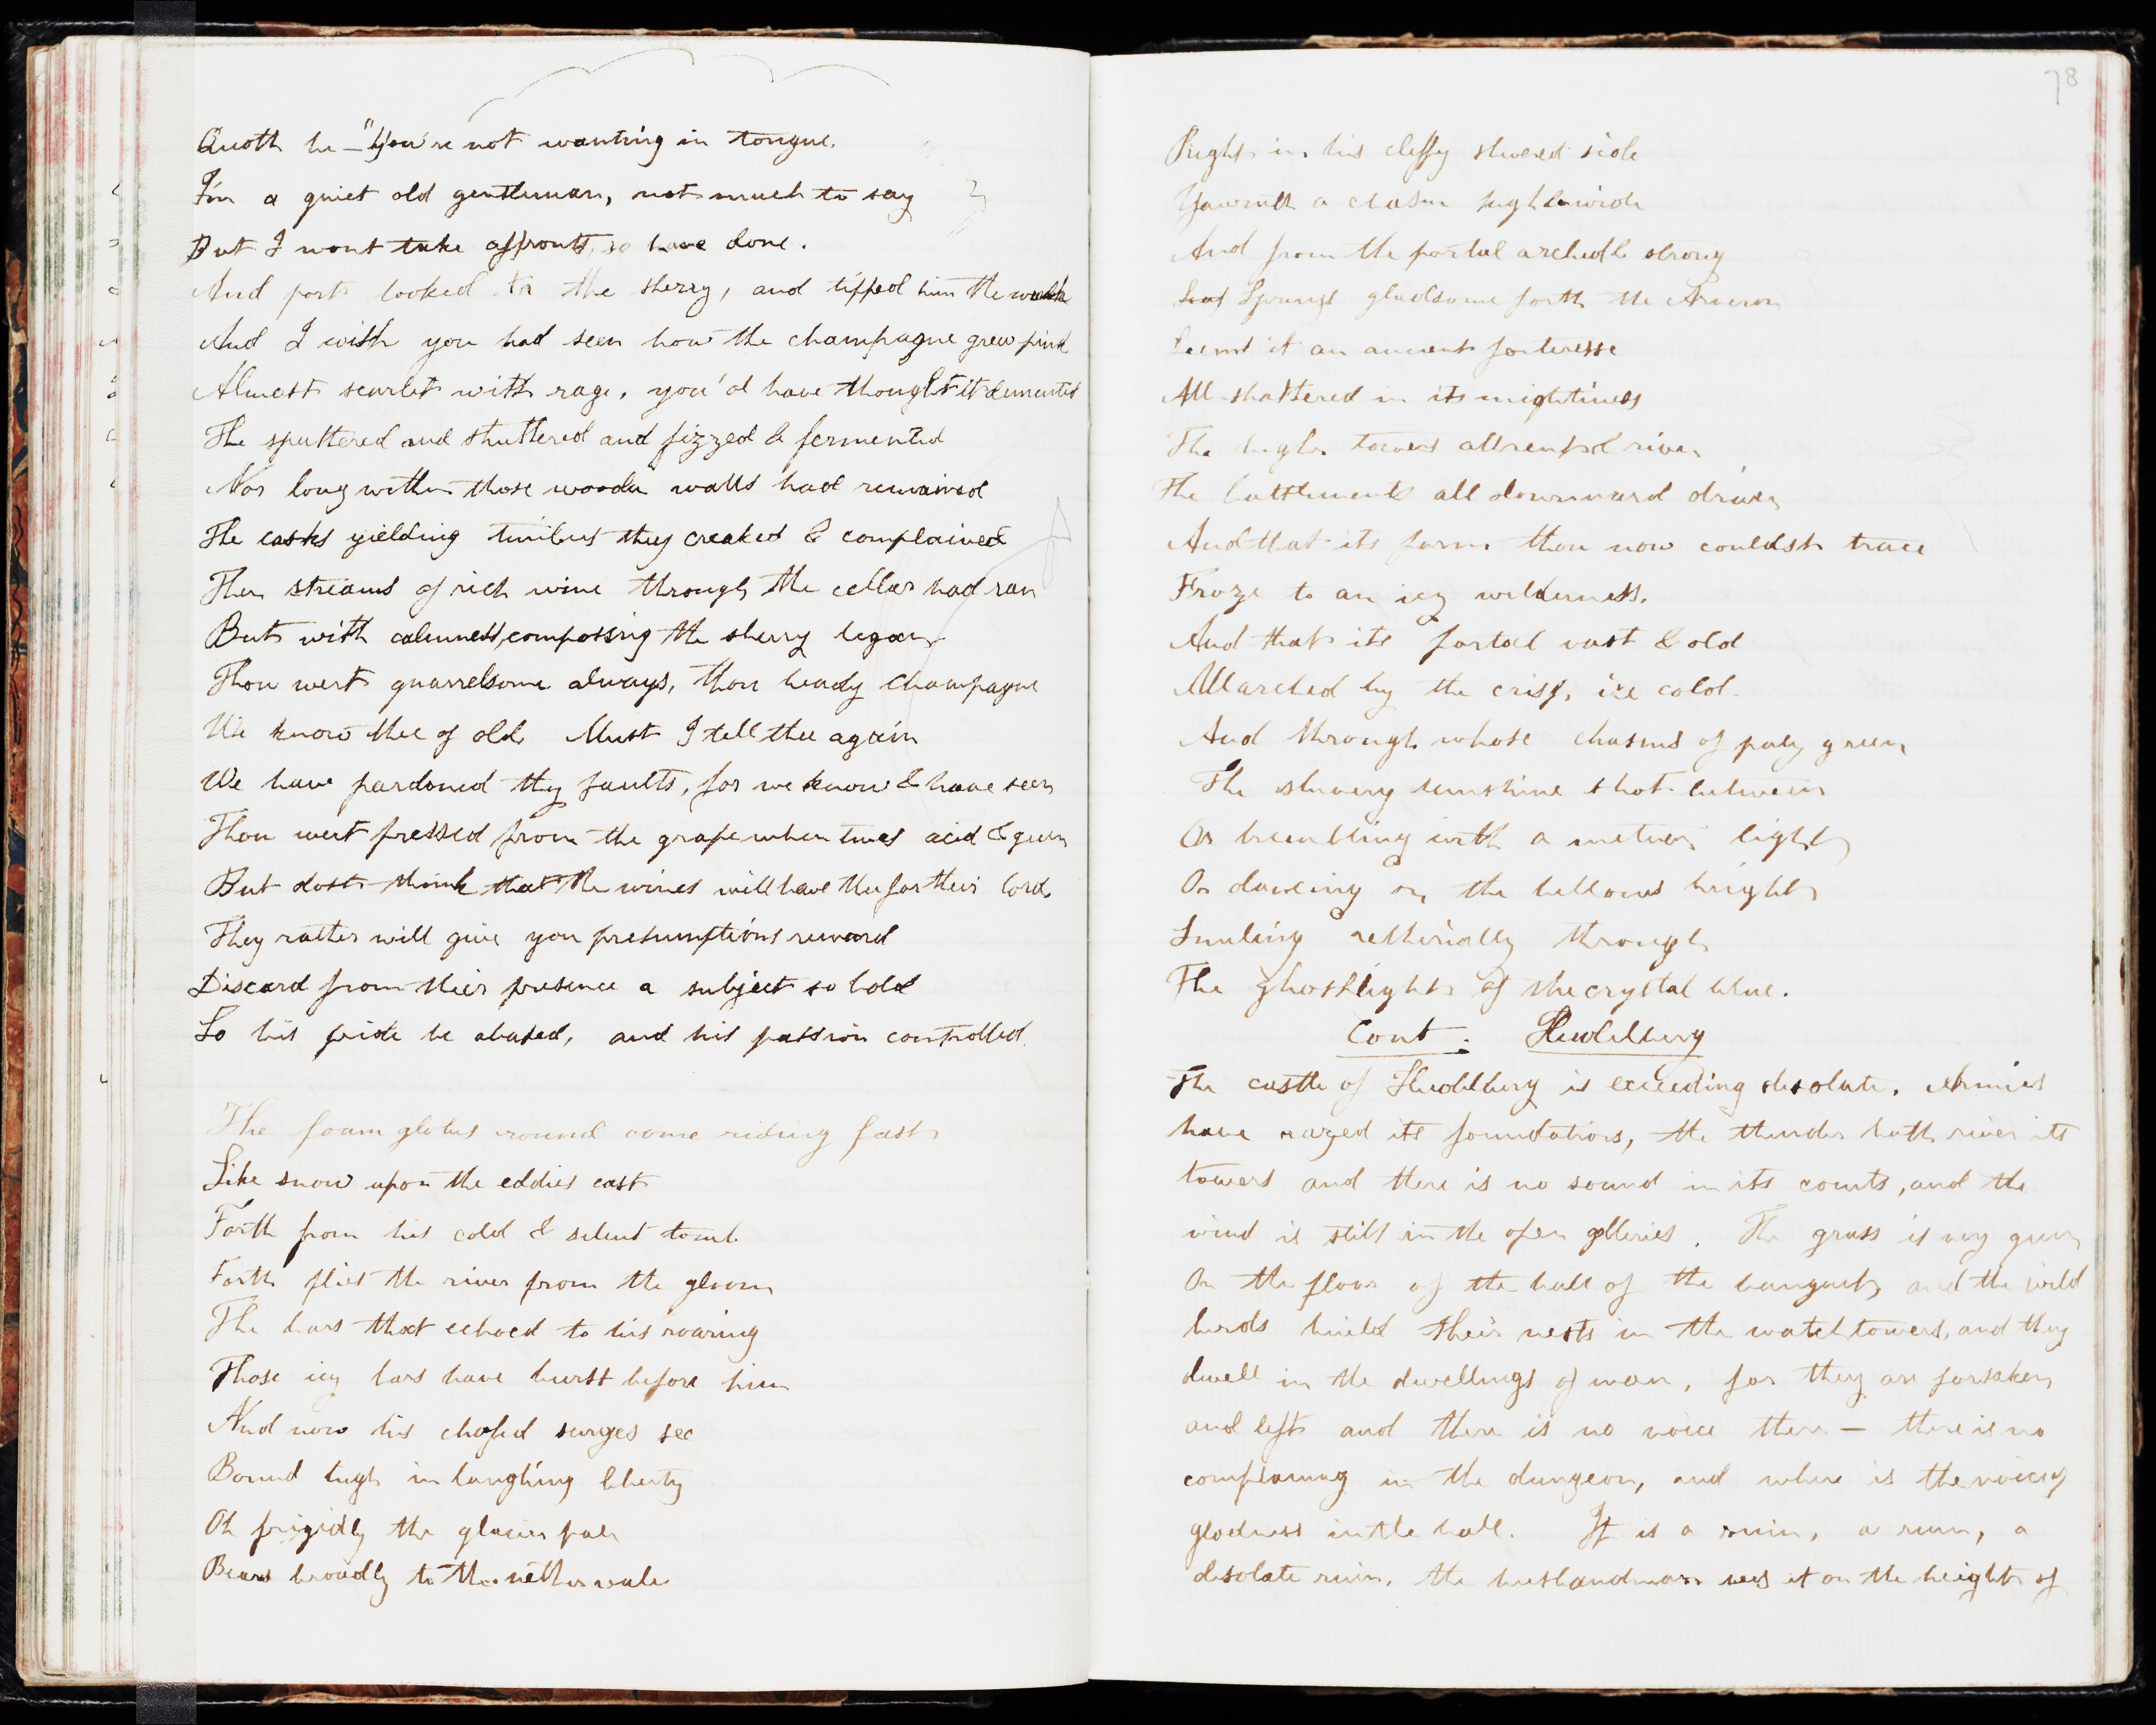 Quoth he — "You're not wanting in tongue.
I'm a quiet old gentleman, not much to say
But I wont take affronts, so have done.
And port looked to the sherry, and tipped him the wink
And I wish you had seen how the champagne grew pink
Almost scarlet with rage, you'd have thought it demented
The sputtered and stuttered and fizzed & fermented
Nor long within those wooden walls had remained
The casks yielding timbers they creaked & complained
Then streams of rich wine through the cellar had ran
But with calmness, composing the sherry began
Thou wert quarrelsome always, thou heady champagne
We know thee of old Must I tell thee again
We have pardoned thy faults, for we know & have seen
Thou wert pressed from the grape when twas acid & green
But dost think that the wines will have thee for their lord
They rather will give you presumptions reward
Discard from their presence a subject so bold
So his pride be abased, and his passion controlled.
The foam globes round come riding fast
Like snow upon the eddies cast
Forth from his cold & silent tomb
Forth flies the river from the gloom
The bars that echoed to his roaring
Those icy bars have burst before him
And now his chafed surges see
Bound high in laughing liberty
Oh frigidly the glacier pale
Bears broadly to the nether vale
78
Right in his cliffy shivered side
Yawneth a chasm high & wide
And from the portal archedth strong
Springs gladsome forth the Arveron
Seems it an ancient forteresse
All shattered in its mightiness
The high towers all rent riven
The battlements all downward driven
And that its form thou now couldst trace
Froze to an icy wilderness.
And that its portal vast & old
All arched by the crisp, ice cold.
And through whose chasms of paly green
The shivery sunshine shot between
Or trembling with a meteor light
Or dancing on the billows bright
Smiling aetherially through
The ghostlights of the crystal blue.
Cont. Heidelberg
The castle of Heidelberg is exceeding desolate. Armies
have razed its foundations, the thunder hath riven its
towers and there is no sound in its courts, and the
wind is still in the open galleries. The grass is very green
On the floor of the hall of the banquet, and the wild
birds build their nests in the watchtowers, and they
dwell in the dwellings of man, for they are forsaken
and left and there is no voice there — there is no
complaining in the dungeon, and where is the voice of
gladness in the hall. It is a ruin, a ruin, a
desolate ruin. the husbandman sees it on the height of